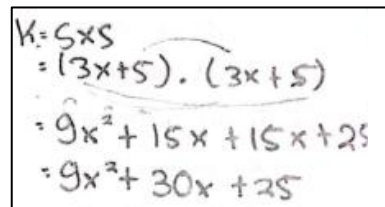 K = S x S
= (3x+5) . (3x+5)
= 9x² + 15x + 15x + 25
= 9x² + 30x + 25